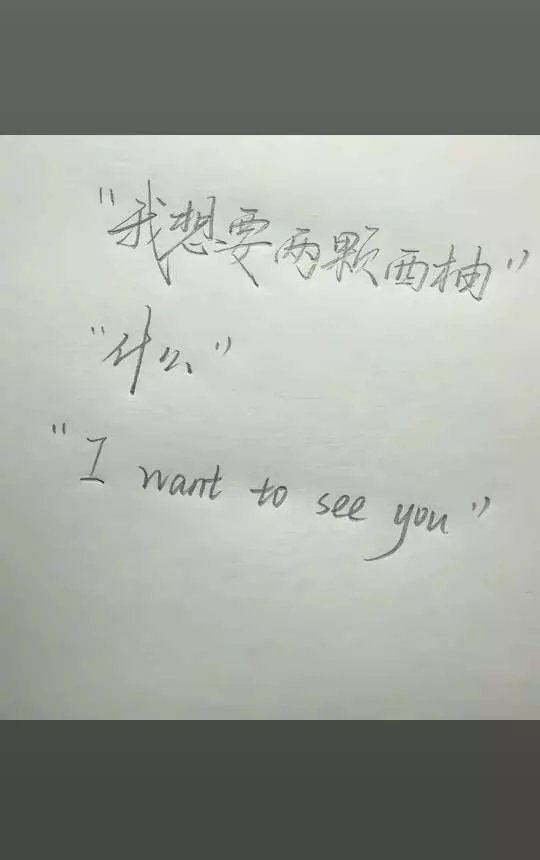 "我想要两颗西柚"
"什么"
"I want to see you"